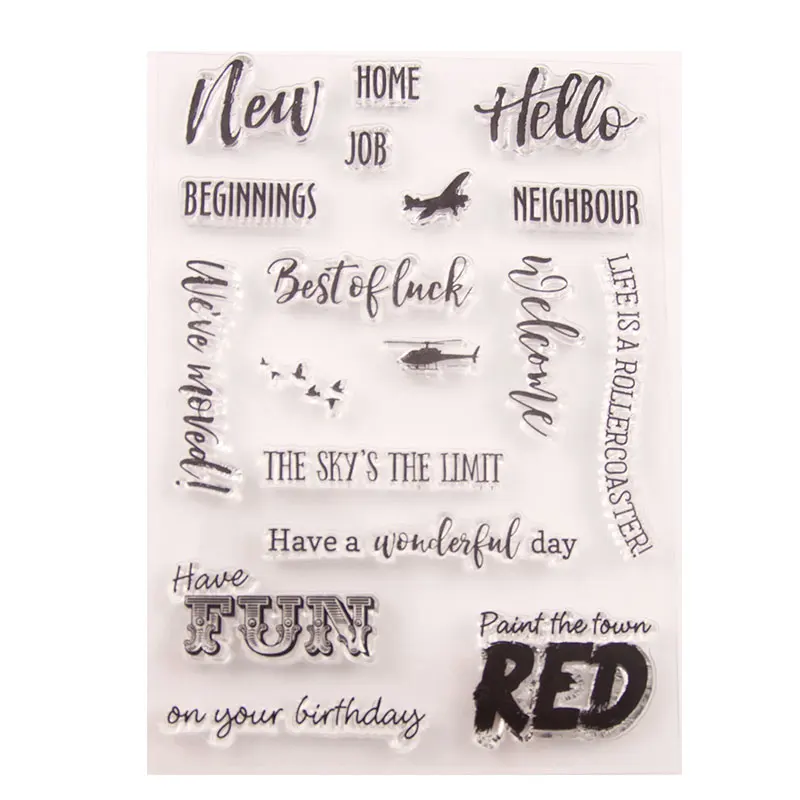 New
HOME
Hello
JOB
BEGINNINGS
NEIGHBOUR
We've moved!
Best of luck
Welcome
LIFE IS A ROLLERCOASTER!
THE SKY'S THE LIMIT
Have a wonderful day
Have
FUN
on your birthday
Paint the town
RED